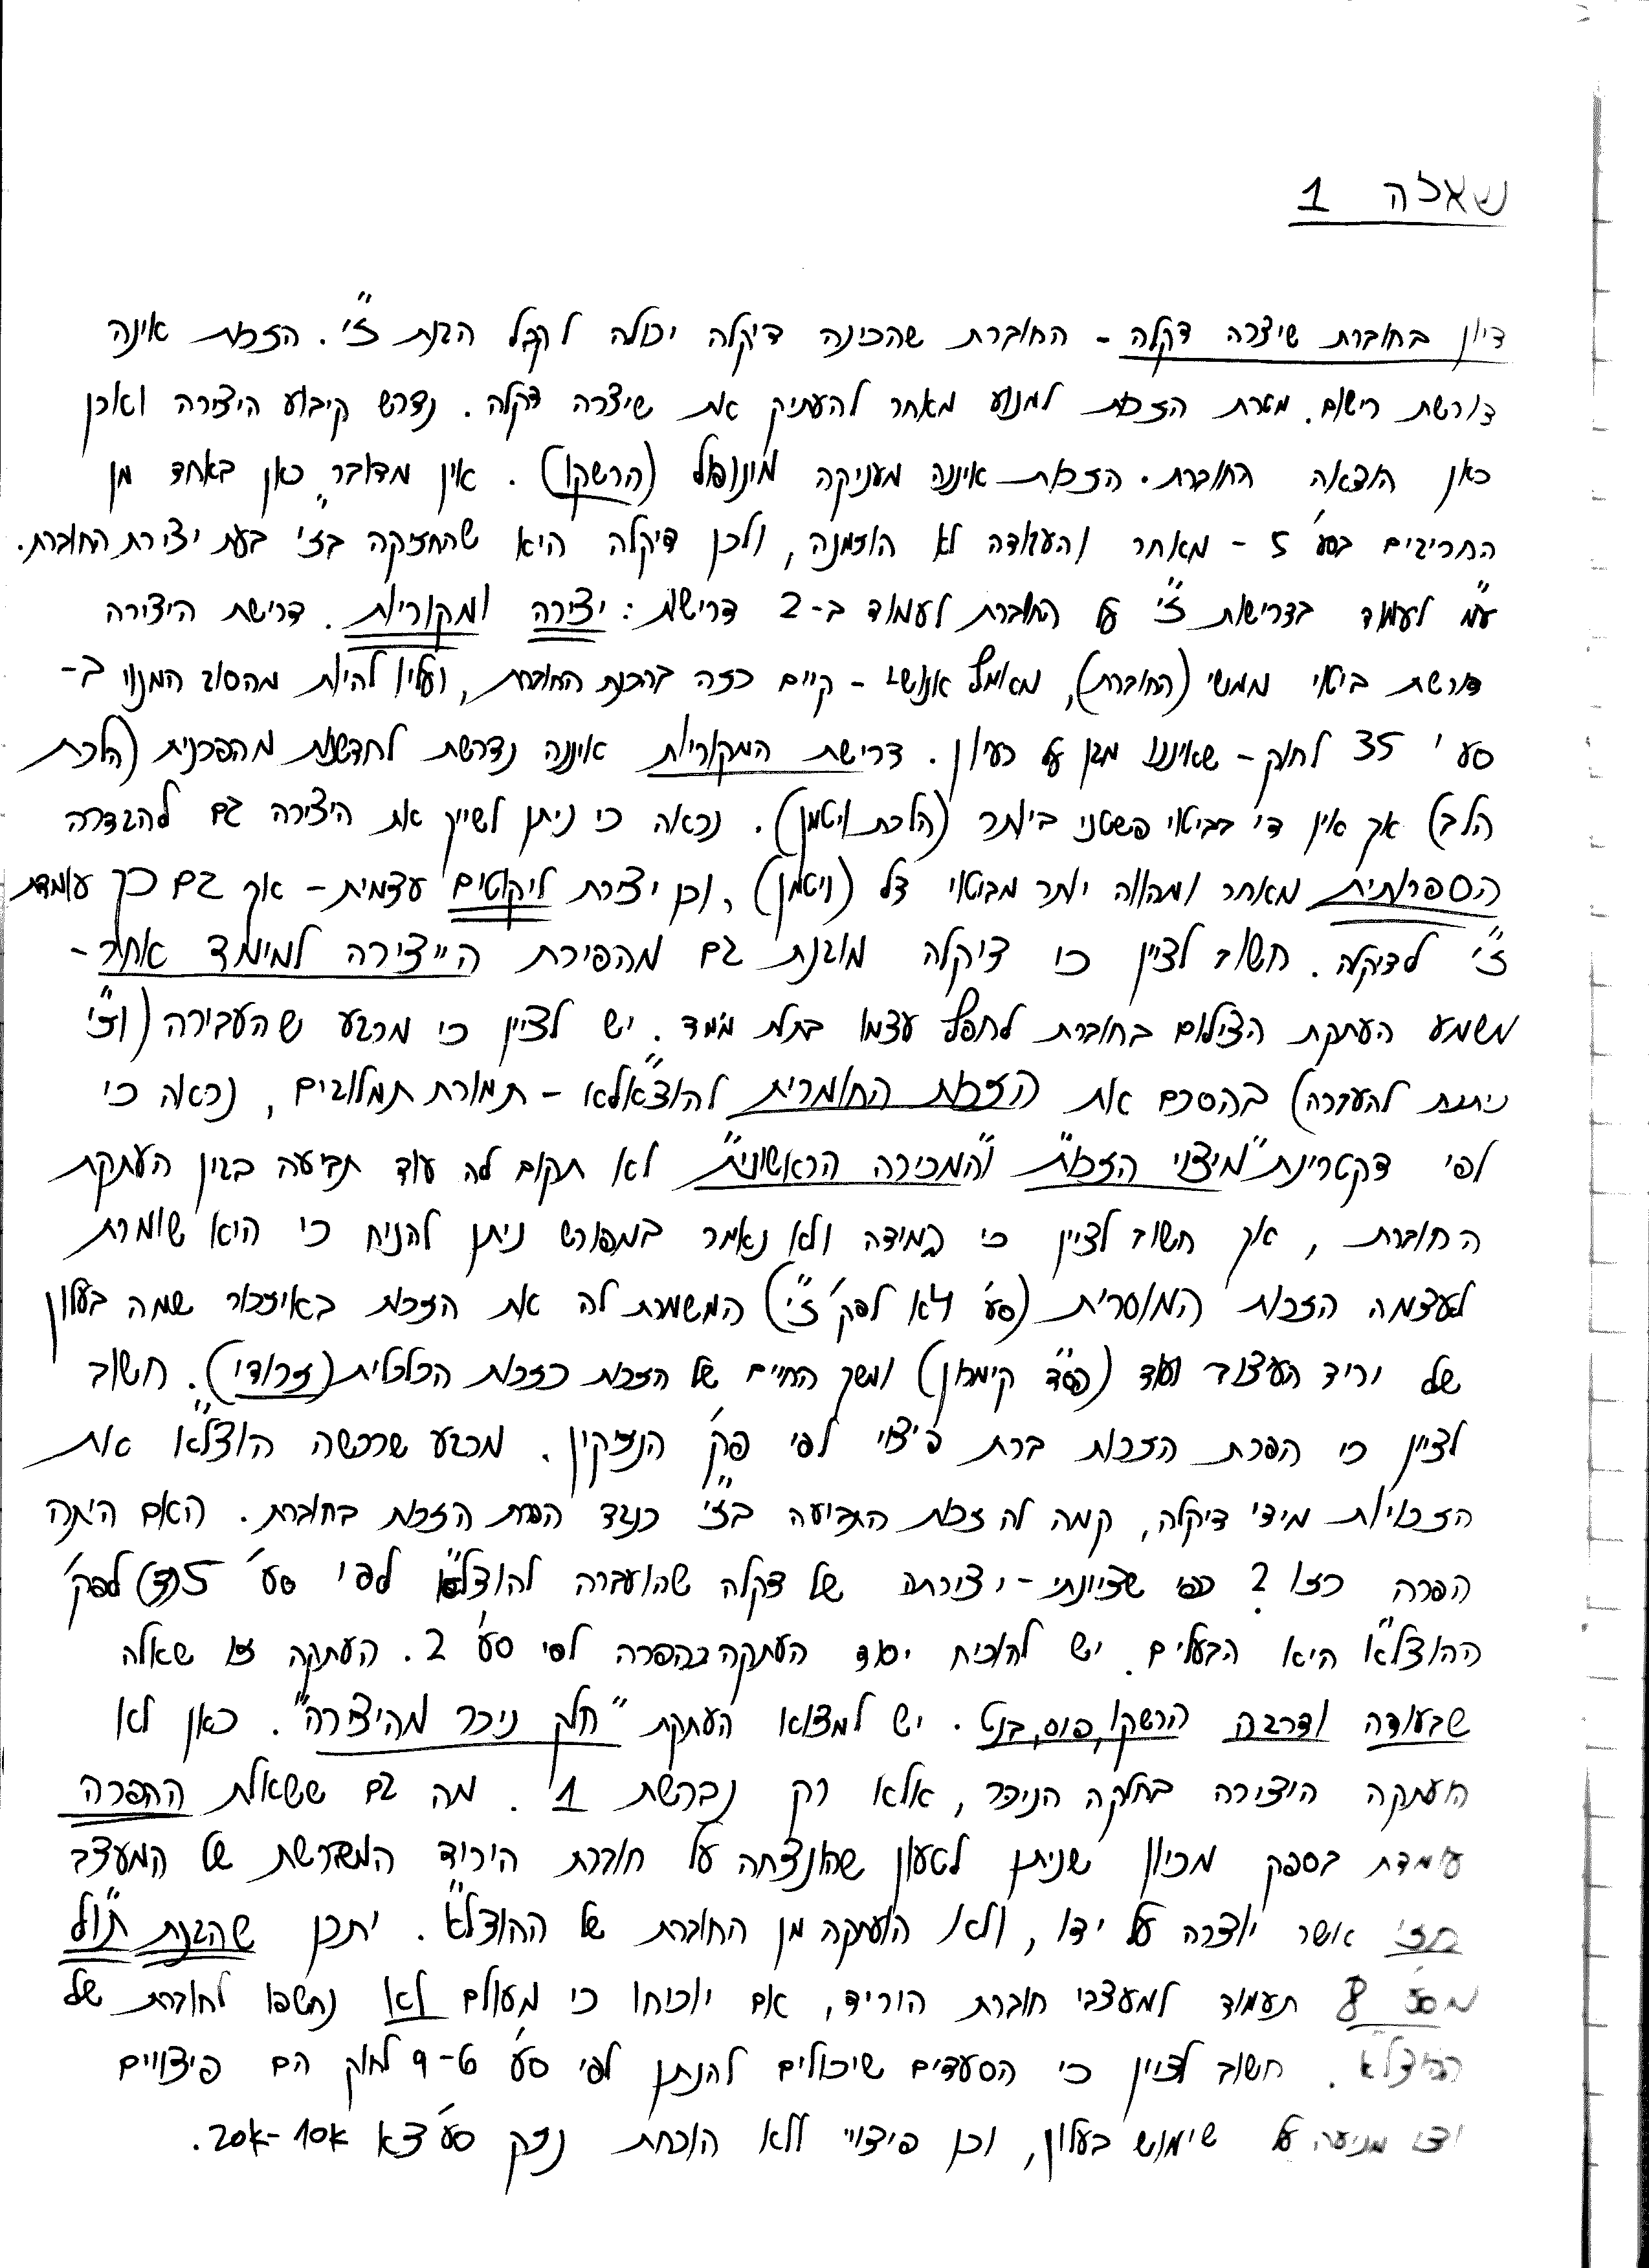 שאלה 1
דיון בחוברת שיצרה דקלה - החוברת שהכינה דיקלה יכולה לקבל הגנת ז"י. הזכות אינה
דורשת רישום. מטרת הזכות למנוע מאחר להעתיק את שיצרה דקלה. נדרש קיבוע היצירה ואכן
כאן הוצאה החוברת. הזכות איננה מעניקה מונופול (הרשקו). אין מדובר כאן באחד מן
החריגים בסע' 5 - מאחר והעבודה לא הוזמנה, ולכן דיקלה היא שהחזיקה בז"י בעת יצירת החוברת.
ע"מ לעמוד בדרישות ז"י על החוברת לעמוד ב-2 דרישות: יצירה ומקוריות. דרישת היצירה
דורשת ביטוי ממשי (החוברת), מאמץ אנושי - קיים כזה בהכנת החוברת, ועליו להיות מהסוג המנוי ב-
סע' 35 לחוק - שאיננו מגן על רעיון. דרישת המקוריות איננה נדרשת לחדשנות מהפכנית (הלכת
הלב) אך אין די בביטוי פשטני ביותר (הלכת ויטמן). נראה כי ניתן לשייך את היצירה גם להגדרה
הספרותית מאחר ומהווה יותר מביטוי דל (ויטמן), וכן יצירת ליקוטים עצמית - אך גם כך עומדת
ז"י לדיקלה. חשוב לציין כי דיקלה מוגנת גם מהפירת היצירה למימד אחר -
משמע העתקת הצילום בחוברת לחפץ עצמו בתלת מימד. יש לציין כי מרגע שהעבירה (וז"י
ניתנת להעברה) בהסכם את הזכות החומרית להוצל"א - תמורת תמלוגים, נראה כי
לפי דקטרינת "מיצוי הזכות" ו"המכירה הראשונית" לא תקום לה עוד תביעה בגין העתקת
החוברת, אך חשוב לציין כי במידה ולא נאמר במפורש ניתן להניח כי היא שומרת
לעצמה הזכות המוסרית (סע' 4א לפק' ז"י) המשמרת לה את הזכות באיזכור שמה בעלון
של יריד העיצוב ועוד (פס"ד קימרון) ומשך החיים של הזכות כזכות הכלכלית (זרודי). חשוב
לציין כי הפרת הזכות ברת פיצוי לפי פק' הנזיקין. מרגע שרכשה הוצל"א את
הזכויות מידי דיקלה, קמה לה זכות התביעה בז"י כנגד הפרת הזכות בחוברת. האם היתה
הפרה כזו? כפי שציינתי - יצירתה של דקלה שהועברה להוצל"א לפי סע' 5(ד) לפק'
ההוצל"א היא הבעלים. יש להוכיח יסוד העתקה בהפרה לפי סע' 2. העתקה זו שאלה
שבעובדה ודרגה הרשקו, פוס, גנט. יש למצוא העתקת "חלק ניכר מהיצירה". כאן לא
הועתקה היצירה בחלקה הניכר, אלא רק נברשת 1. מה גם ששאלת ההפרה
עומדת בספק מכיוון שניתן לטעון שהונצחה על חוברת היריד המשברשת של המעצב
בז"י אשר יוצרה על ידו, ולא הועתקה מן החוברת של ההוצל"א. יתכן שהגנת תו"ל
מסע' 8 תעמוד למעצבי חוברת היריד, אם יוכיחו כי מעולם לא נחשפו לחוברת של
הוצל"א. חשוב לציין כי הסעדים שיכולים להנתן לפי סע' 6-9 לחוק הם פיצויים
וצו מניעה על שימוש בעלון, וכן פיצוי ללא הוכחת נזק סע' 3א 10א-20א.